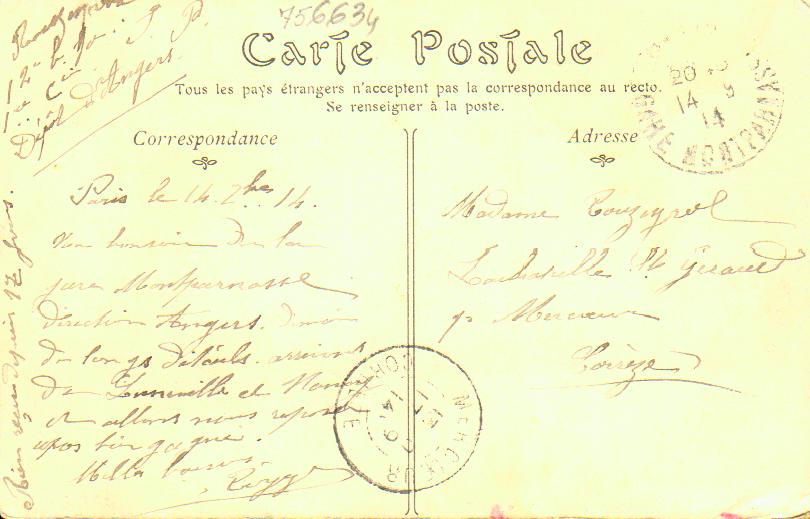 756634
Carte Postale
Tous les pays étrangers n'acceptent pas la correspondance au recto.
Se renseigner à la poste.
Correspondance
Adresse
Dépôt d'Angers.
Paris le 14. 7bre 14.
Un bonsoir de la
gare Montparnasse
direction Angers.
de longs détails. arrivons
de Lunéville et Nancy
et allons nous reposer
repos bien gagné.
Mille baisers.
Rien reçu depuis 17 jours.
Madame Touzeyrol
St Geraud
p. Mercœur
Corrèze
GARE MONTPARNASSE
20
14 9
14
MERCŒUR
CORRÈZE
17
9
14